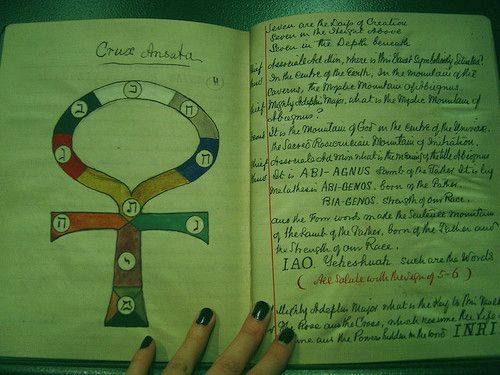 Crux Ansata
כ
ב
ג
ת
נ
Seven are the Days of Creation
Seven in the Height Above
Seven in the Depth beneath
Associate Adept Min, where is this Vault Symbolically Situated?
In the Centre of the Earth, in the Mountain of the
Caverns, the Mystic Mountain of Abiegnus.
Mighty Adeptus Major, what is the Mystic Mountain of
Abiegnus?
It is the Mountain of God in the Centre of the Universe.
the Sacred Rosicrucian Mountain of Initiation.
Associate Ad Min what is the meaning of the title Abiegnus
It is ABI-AGNUS Lamb of the Father. It is by
Metathesis ABI-GENOS. Born of the Father.
BIA-GENOS. Strength of our Race.
and the Four words make the Sentence Mountain
of the Lamb of the Father, Born of the Father and
the Strength of our Race.
IAO. Yeheshuah such are the Words
(All Salute with the Sign of 5-6)
Mighty Adeptus Major what is the Key to this Vault
The Rose and the Cross, which resume the Life
and the Power hidden in the word INRI